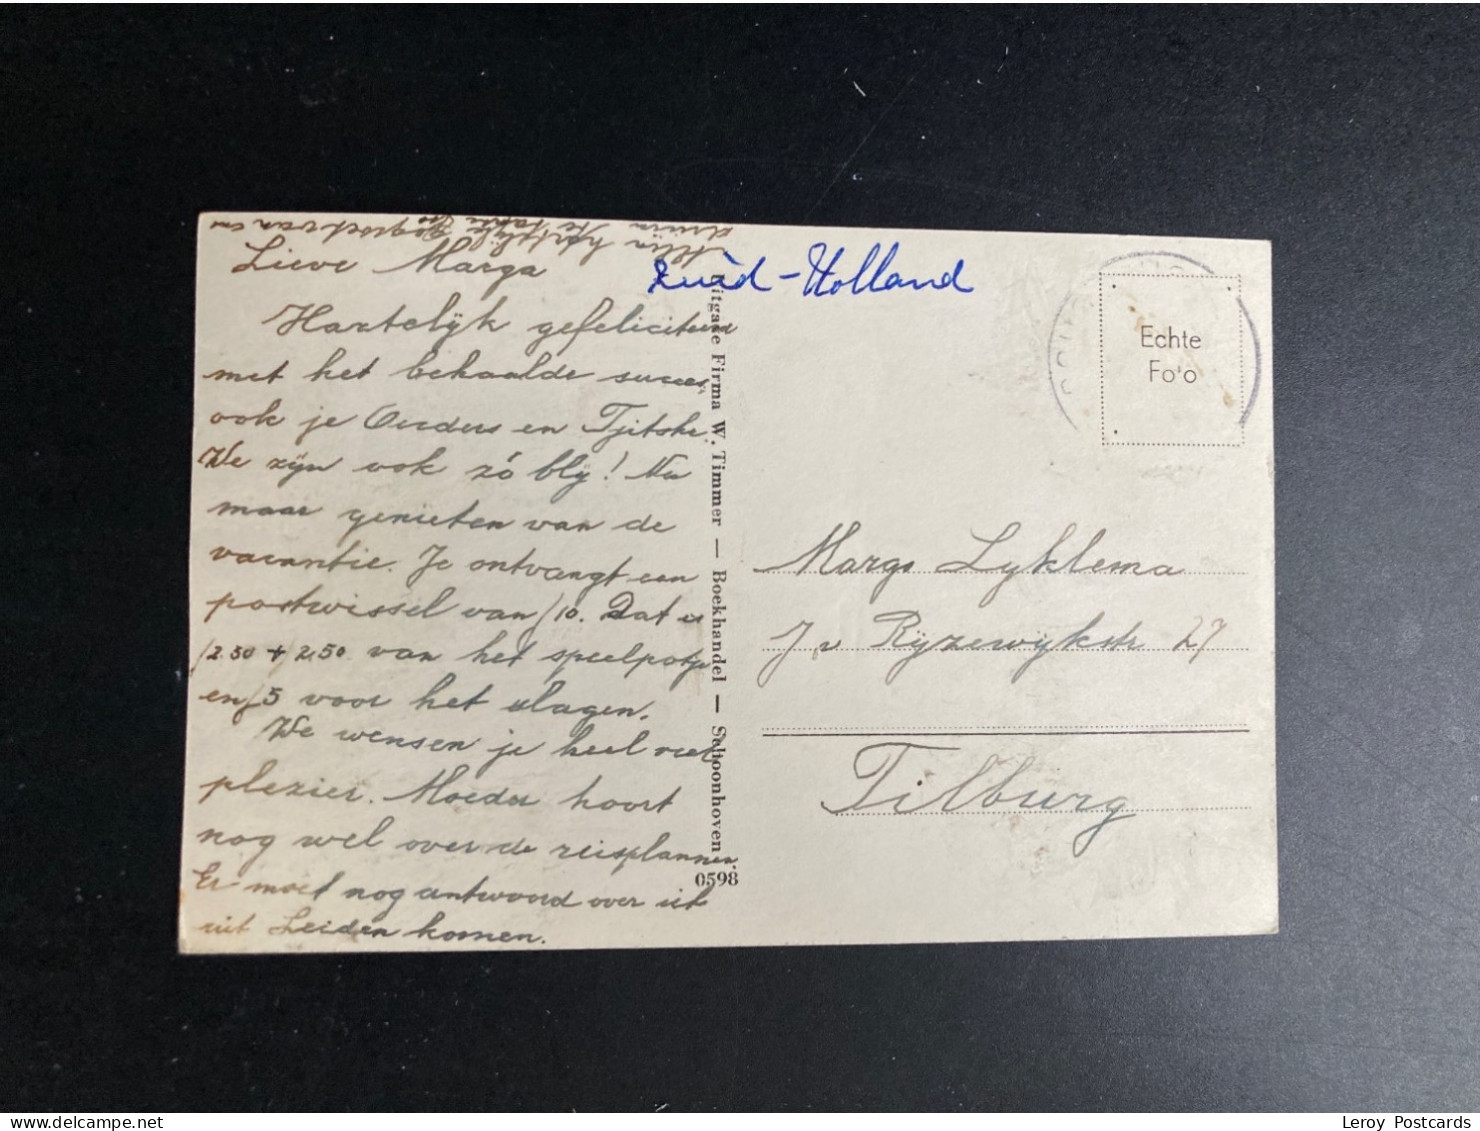 Lieve Marga
Hartelijk gefeliciteerd
met het behaalde succes,
ook je Ouders en Tjitske.
We zijn ook zó blij! Nu
maar genieten van de
vacantie. Je ontvangt een
postwissel van f10. Dat is
f2.50 + f2.50 van het speelpotje
en f5 voor het slagen.
We wensen je heel veel
plezier. Moeder hoort
nog wel over de reisplannen.
Er moet nog antwoord over uit
uit Leiden komen.
Allen hartelijk
gegroet van
Tante
Zuid-Holland
Uitgave Firma W. Timmer — Boekhandel — Schoonhoven
0598
Echte
Fo'o
Marga Lyklema
J v Rijzewijkstr 27
Tilburg
Leroy Postcards